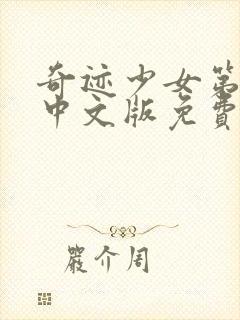 奇迹少女第
中文版免费
嚴介周